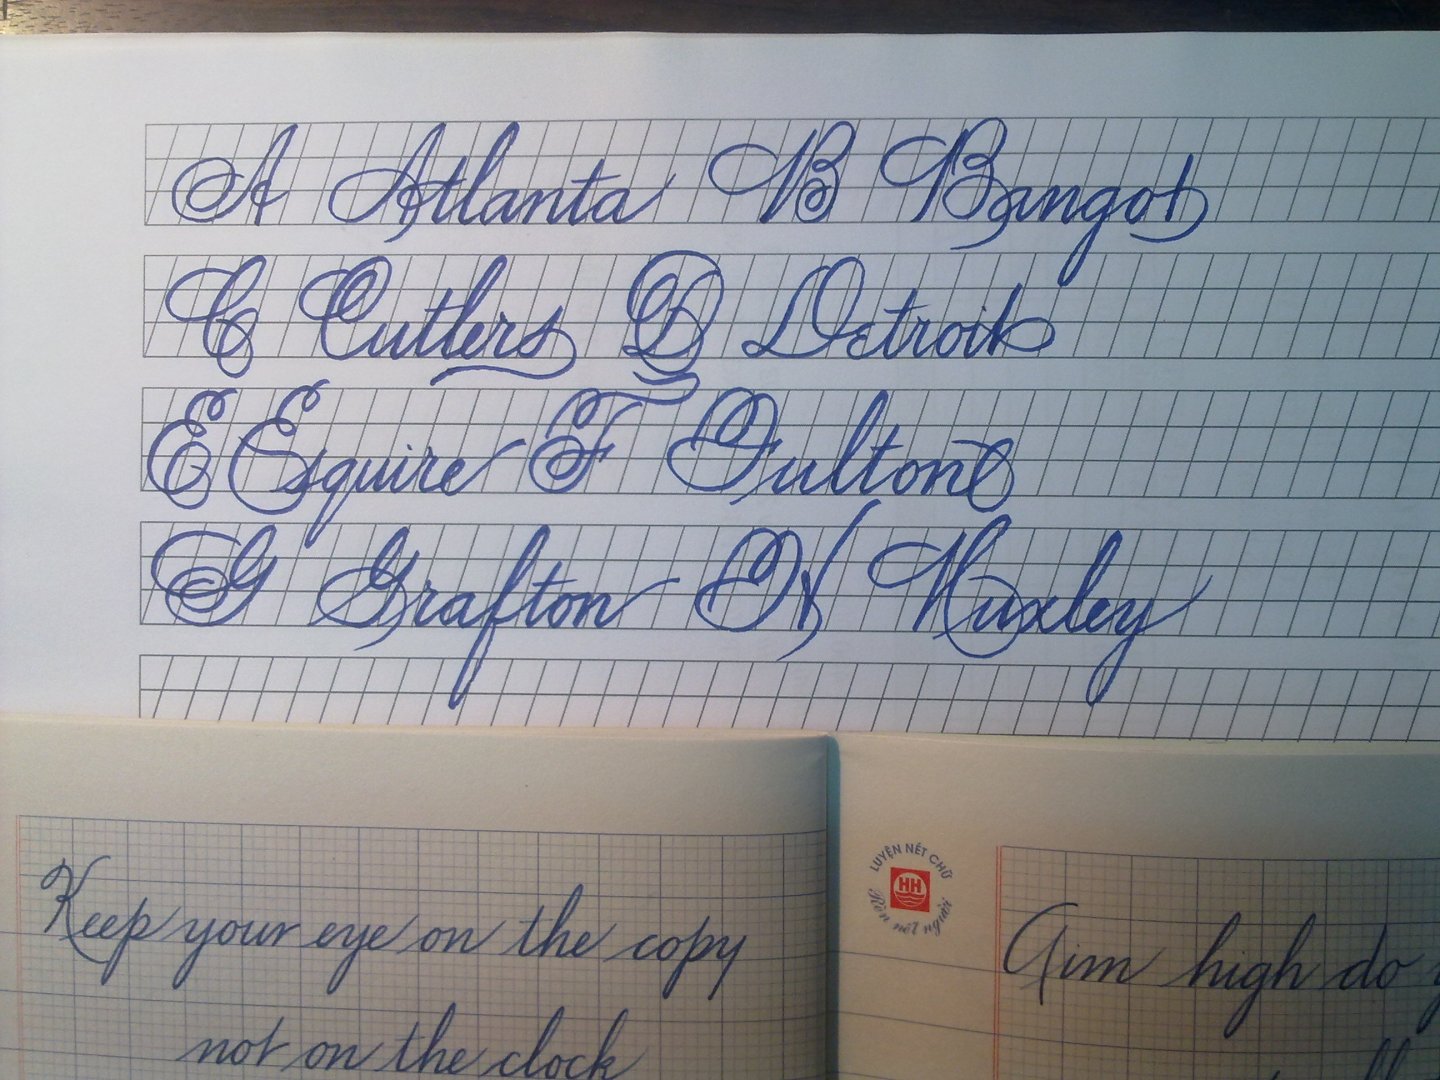 A Atlanta B Bangot
C Cutlers D Detroit
E Esquire F Fulton
G Grafton H Huxley
Keep your eye on the copy
not on the clock
LUYỆN NÉT CHỮ
HH
Rèn nết người
Aim high do